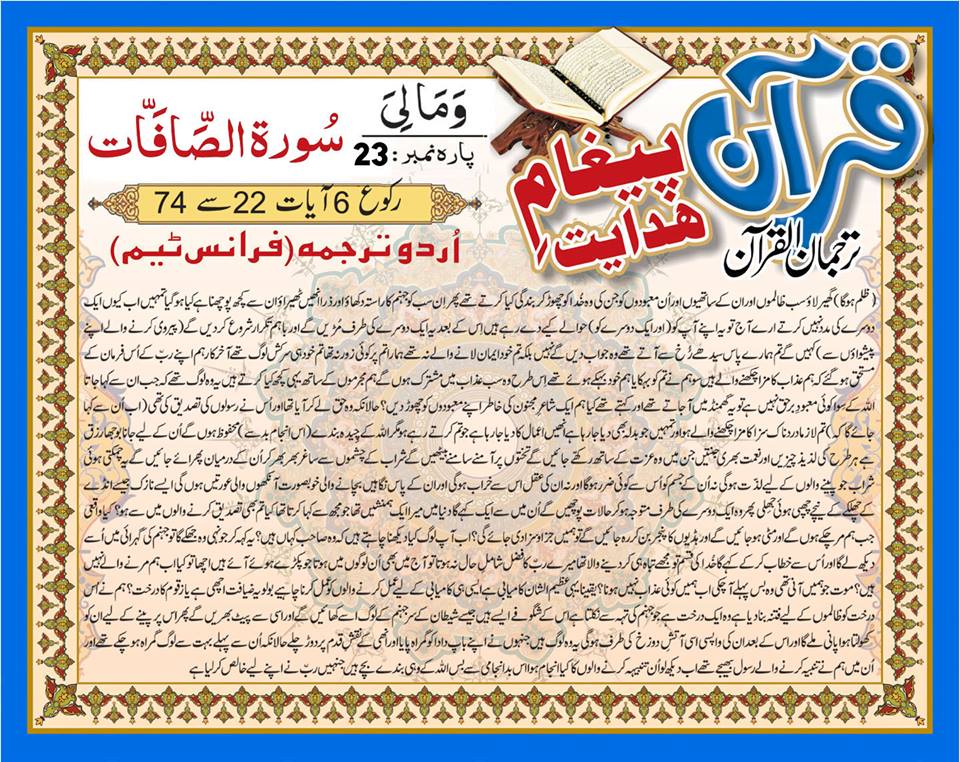 قرآن
پیغامِ
ھدایت
ترجمان القرآن
وَمَالِیَ
پارہ نمبر: 23
سُورۃ الصَّافَّات
رکوع 6 آیات 22 سے 74
اُردو ترجمہ (فرانس ٹیم)
(ظلم ہوگا) گھیر لاؤ سب ظالموں اور ان کے ساتھیوں اور اُن معبودوں کو جن کی وہ خدا کو چھوڑ کر بندگی کیا کرتے تھے پھر ان سب کو جہنم کا راستہ دکھاؤ اور ذرا انھیں ٹھیراؤ ان سے کچھ پوچھنا ہے کیا ہو گیا تمہیں اب کیوں ایک
دوسرے کی مدد نہیں کرتے ارے آج تو یہ اپنے آپ کو (اور ایک دوسرے کو) حوالے کیے دے رہے ہیں اِس کے بعد یہ ایک دوسرے کی طرف مڑیں گے اور باہم تکرار شروع کر دیں گے (پیروی کرنے والے اپنے
پیشواؤں سے) کہیں گے تم ہمارے پاس سیدھے رُخ سے آتے تھے وہ جواب دیں گے نہیں بلکہ تم خود ایمان لانے والے نہ تھے ہمارا تم پر کوئی زور نہ تھا تم خود ہی سرکش لوگ تھے آخر کار ہم اپنے ربّ کے اُس فرمان کے
مستحق ہو گئے کہ ہم عذاب کا مزا چکھنے والے ہیں سو ہم نے تم کو بہکایا ہم خود بہکے ہوئے تھے اس طرح وہ سب عذاب میں مشترک ہوں گے ہم مجرموں کے ساتھ یہی کچھ کیا کرتے ہیں یہ وہ لوگ تھے کہ جب ان سے کہا جاتا
اللہ کے سوا کوئی معبود برحق نہیں ہے تو یہ گھمنڈ میں آ جاتے تھے اور کہتے تھے کیا ہم ایک شاعر مجنون کی خاطر اپنے معبودوں کو چھوڑ دیں؟ حالانکہ وہ حق لے کر آیا تھا اور اُس نے رسولوں کی تصدیق کی تھی (اب ان سے کہا
جائے گا کہ) تم لازما دردناک سزا کا مزا چکھنے والے ہو اور تمہیں جو بدلہ بھی دیا جا رہا ہے انھیں اعمال کا دیا جا رہا ہے جو تم کرتے رہے ہو مگر اللہ کے چیدہ بندے (اس انجام بد سے) محفوظ ہوں گے اُن کے لیے جانا بوجھا رزق
ہے ہر طرح کی لذیذ چیزیں اور نعمت بھری جنتیں جن میں وہ عزت کے ساتھ رکھے جائیں گے تختوں پر آمنے سامنے بیٹھیں گے شراب کے چشموں سے ساغر بھر بھر کر اُن کے درمیان پھرائے جائیں گے چمکتی ہوئی
شراب جو پینے والوں کے لیے لذّت ہوگی نہ اُن کے جسم کو اُس سے کوئی ضرر ہوگا اور نہ ان کی عقل اس سے خراب ہوگی اور ان کے پاس نگاہیں بچانے والی خوبصورت آنکھوں والی عورتیں ہوں گی ایسی نازک جیسے انڈے
کے چھلکے کے نیچے چھپی ہوئی جھلی پھر وہ ایک دوسرے کی طرف متوجہ ہو کر حالات پوچھیں گے اُن میں سے ایک کہے گا دنیا میں میرا ایک ہمنشیں تھا جو مجھ سے کہا کرتا تھا کیا تم بھی تصدیق کرنے والوں میں سے ہو؟ کیا واقعی
جب ہم مر چکے ہوں گے اور مٹی ہو جائیں گے اور ہڈیوں کا پنجر بن کر رہ جائیں گے تو ہمیں جزا و سزا دی جائے گی؟ اب آپ لوگ کیا دیکھنا چاہتے ہیں کہ وہ صاحب کہاں ہیں؟ یہ کہہ کر جونہی وہ جھکے گا تو جہنم کی گہرائی میں اُسے
دیکھ لے گا اور اُس سے خطاب کر کے کہے گا خدا کی قسم تو مجھے تباہ ہی کر دینے والا تھا میرے ربّ کا فضل شامل حال نہ ہوتا تو آج میں بھی اُن لوگوں میں ہوتا جو پکڑے ہوئے آئے ہیں اچھا تو کیا اب ہم مرنے والے نہیں
ہیں؟ موت جو ہمیں آنی تھی وہ بس پہلے آ چکی اب ہمیں کوئی عذاب نہیں ہونا؟ یقینا یہی عظیم الشان کامیابی ہے ایسی ہی کامیابی کے لیے عمل کرنے والوں کو عمل کرنا چاہیے بولو یہ ضیافت اچھی ہے یا زقوم کا درخت؟ ہم نے اس
درخت کو ظالموں کے لیے فتنہ بنا دیا ہے وہ ایک درخت ہے جو جہنم کی تہہ سے نکلتا ہے اس کے شگوفے ایسے ہیں جیسے شیطان کے سر جہنم کے لوگ اُسے کھائیں گے اور اسی سے پیٹ بھریں گے پھر اس پر پینے کے لیے ان کو
کھولتا ہوا پانی ملے گا اور اس کے بعد ان کی واپسی اسی آتش دوزخ کی طرف ہوگی یہ وہ لوگ ہیں جنہوں نے اپنے باپ دادا کو گمراہ پایا اور انھی کے نقش قدم پر دوڑ چلے حالانکہ اُن سے پہلے بہت سے لوگ گمراہ ہو چکے تھے اور
اُن میں ہم نے تنبیہ کرنے والے رسول بھیجے تھے اب دیکھ لو اُن تنبیہہ کرنے والوں کا کیا انجام ہوا اس بد انجامی سے بس اللہ کے وہی بندے بچے ہیں جنہیں ربّ نے اپنے لیے خالص کر لیا ہے